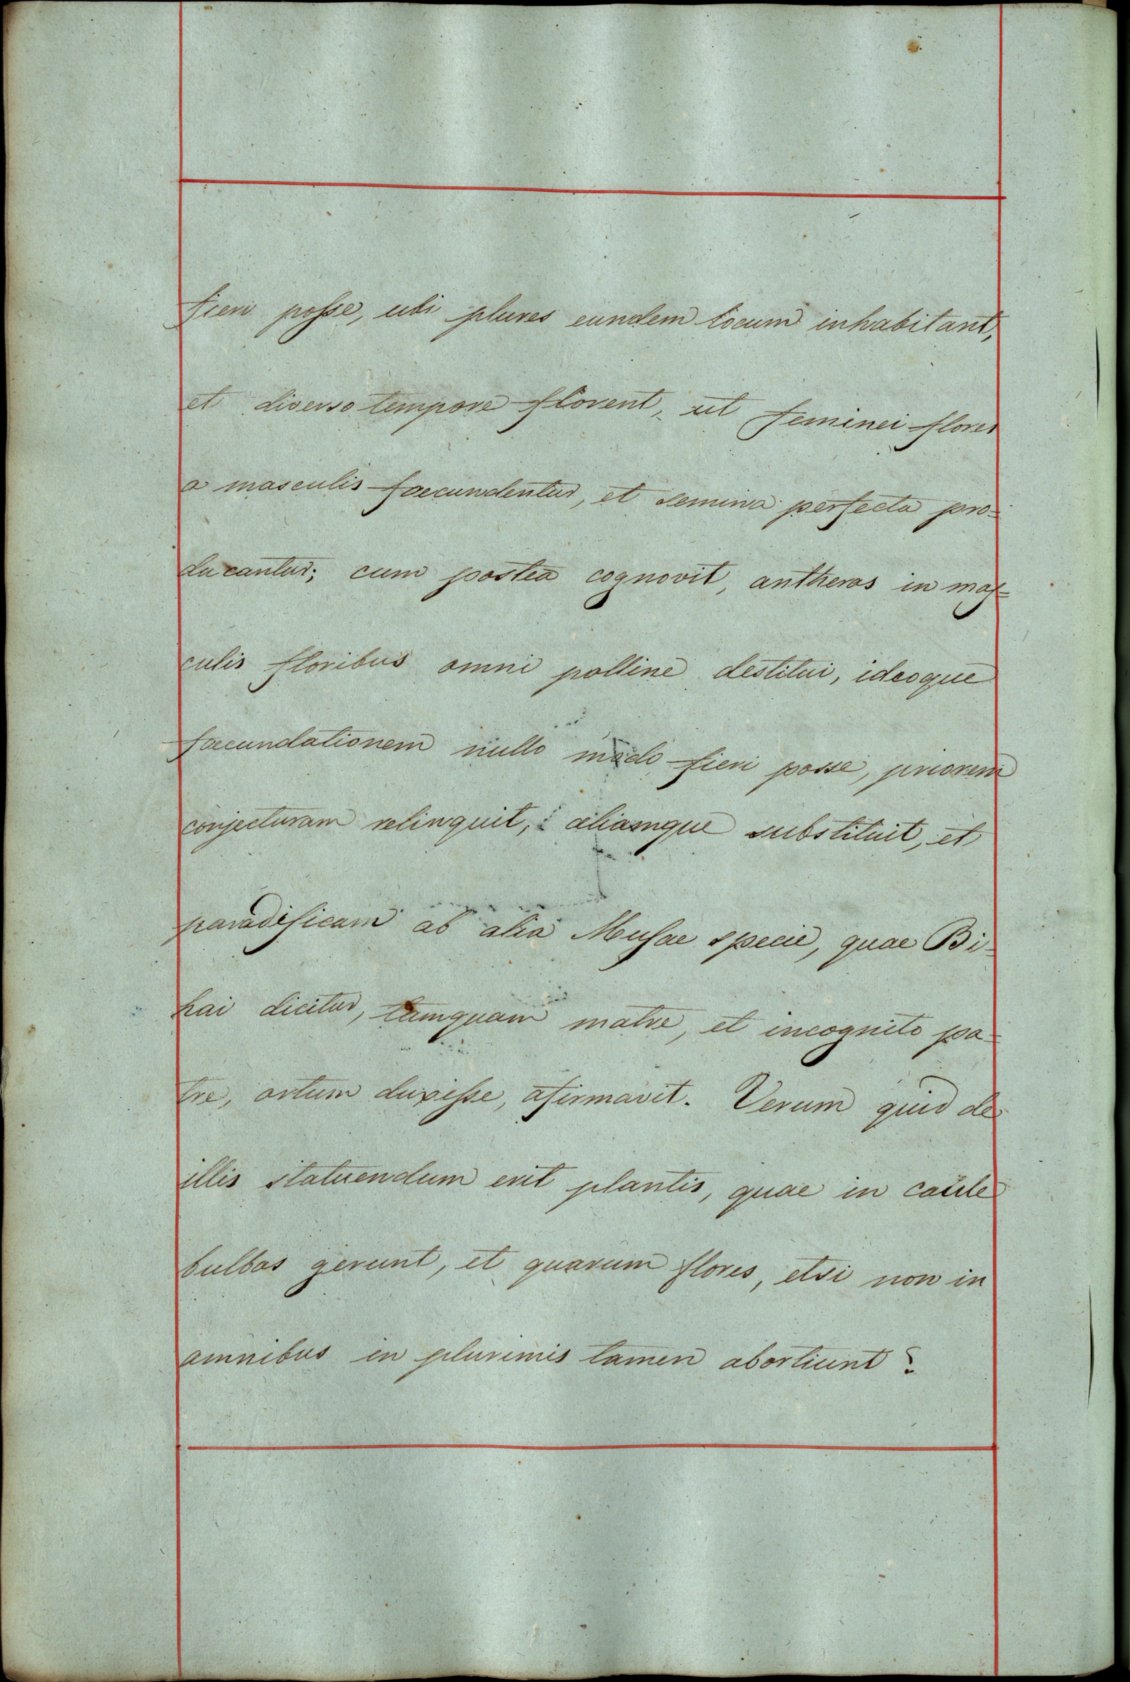 fieri posse, ubi plures eundem locum inhabitant,
et diverso tempore florent, ut feminei flores
a masculis faecundentur, et semina perfecta pro-
ducantur; cum postea cognovit, antheras in mas-
culis floribus omni polline destitui, ideoque
faecundationem nullo modo fieri posse, priorem
conjecturam relinquit, aliamque substituit, et
paradisicam ab alia Musae specie, quae Bi-
hai dicitur, tamquam matre, et incognito pa-
tre, ortum duxisse, afirmavit. Verum quid de
illis statuendum erit plantis, quae in caule
bulbos gerunt, et quarum flores, etsi non in
omnibus in plurimis tamen abortiunt?